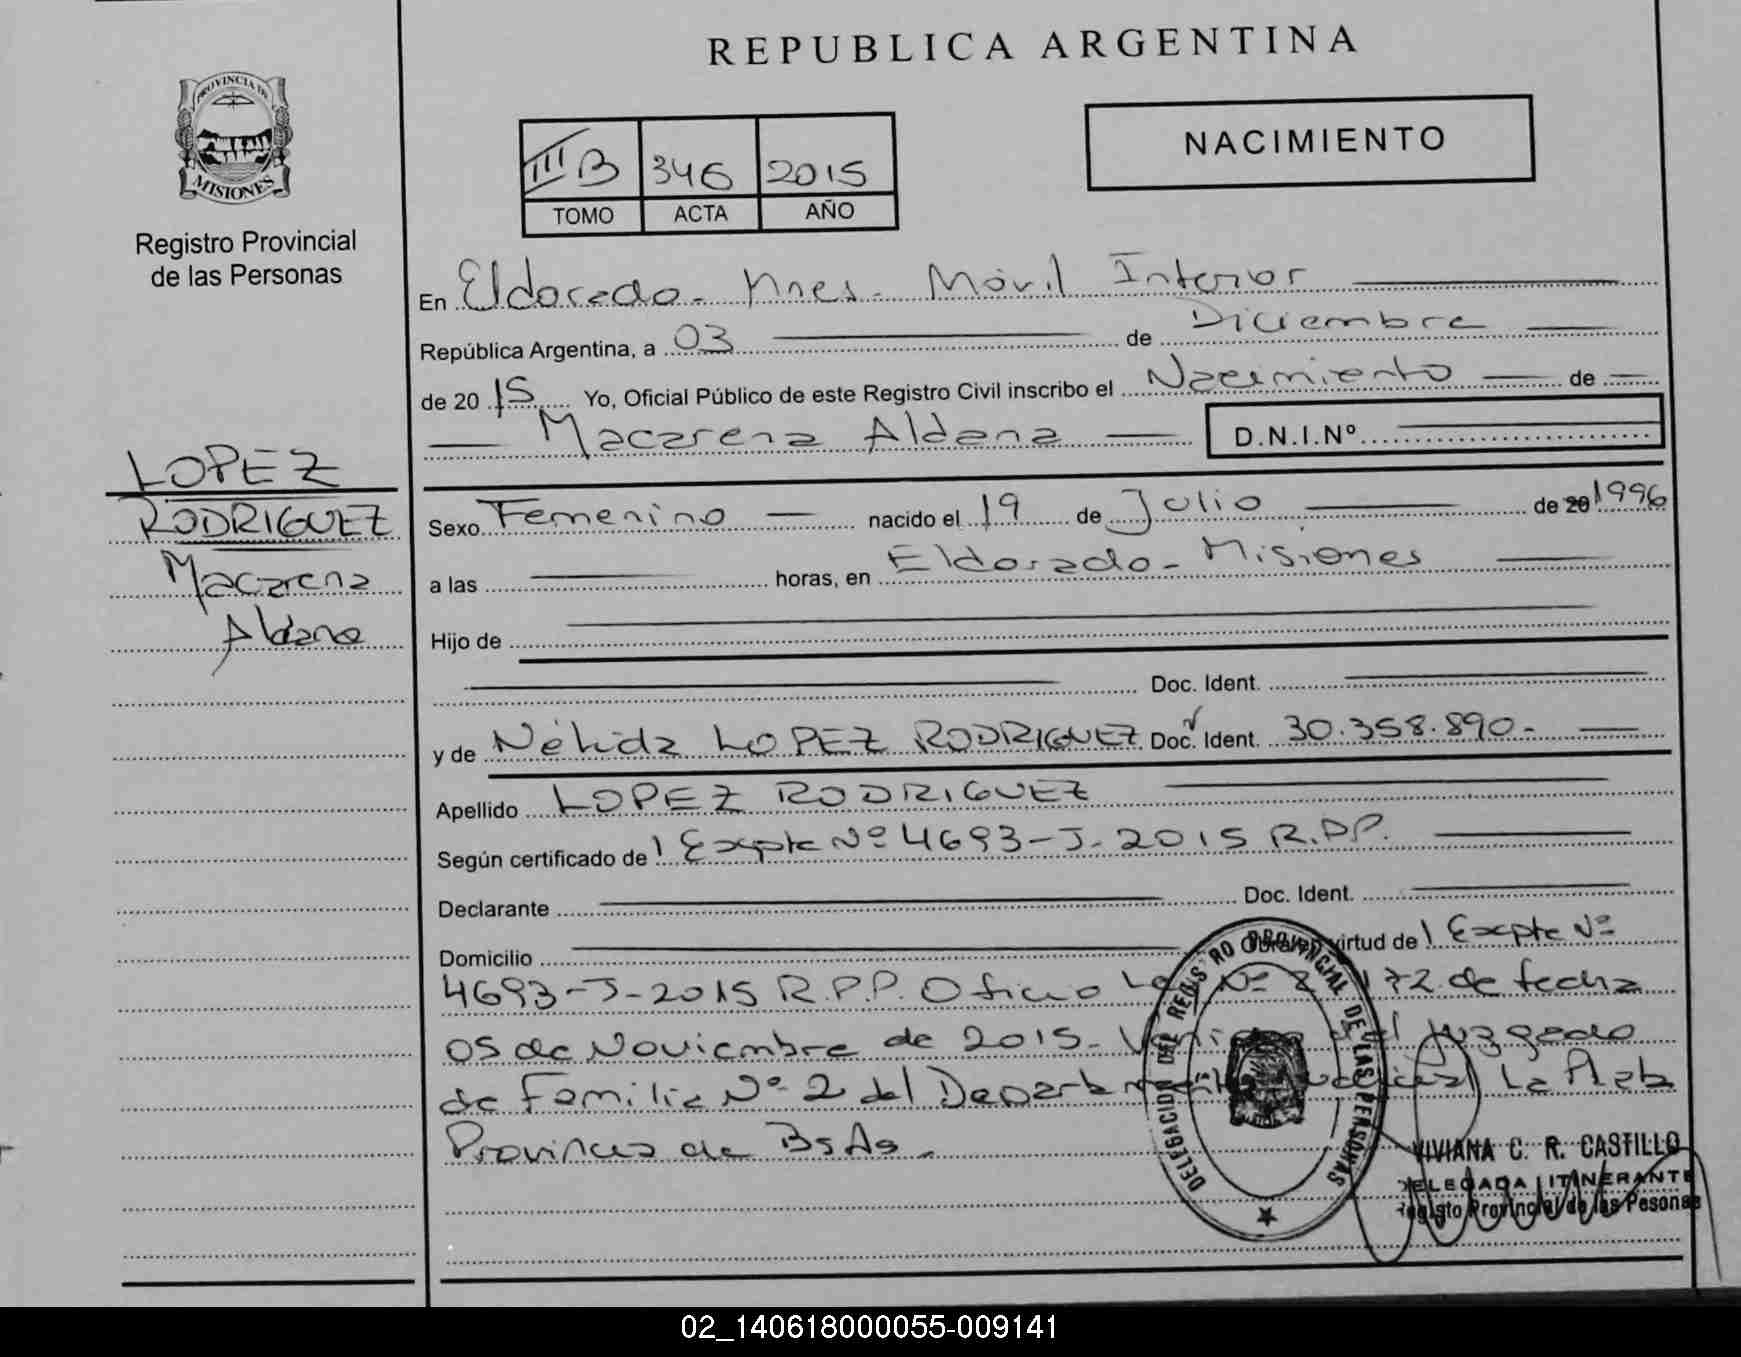 REPUBLICA ARGENTINA
PROVINCIA DE
MISIONES
Registro Provincial
de las Personas
III B 346 2015
TOMO ACTA AÑO
NACIMIENTO
En Eldorado - Mnes - Móvil Interior
República Argentina, a 03 de Diciembre
de 20 15 Yo, Oficial Público de este Registro Civil inscribo el Nacimiento de
Macarena Aldana D.N.I.Nº
LOPEZ
RODRIGUEZ
Macarena
Aldana
Sexo Femenino nacido el 19 de Julio de 20 1996
a las horas, en Eldorado - Misiones
Hijo de
Doc. Ident.
y de Nélida LOPEZ RODRIGUEZ Doc. Ident. 30.358.890.-
Apellido LOPEZ RODRIGUEZ
Según certificado de Expte Nº 4693-J-2015 R.P.P.
Declarante Doc. Ident.
Domicilio Obra en virtud de Expte Nº
4693-J-2015 R.P.P. Oficio Nº 172 de fecha
05 de Noviembre de 2015- del Juzgado
de Familia Nº 2 del Departamento Judicial La Plata
Provincia de BsAs.
DELEGACION DEL REGISTRO PROVINCIAL DE LAS PERSONAS
VIVIANA C. R. CASTILLO
DELEGADA ITINERANTE
Registo Provincial de las Pesonas
02_140618000055-009141